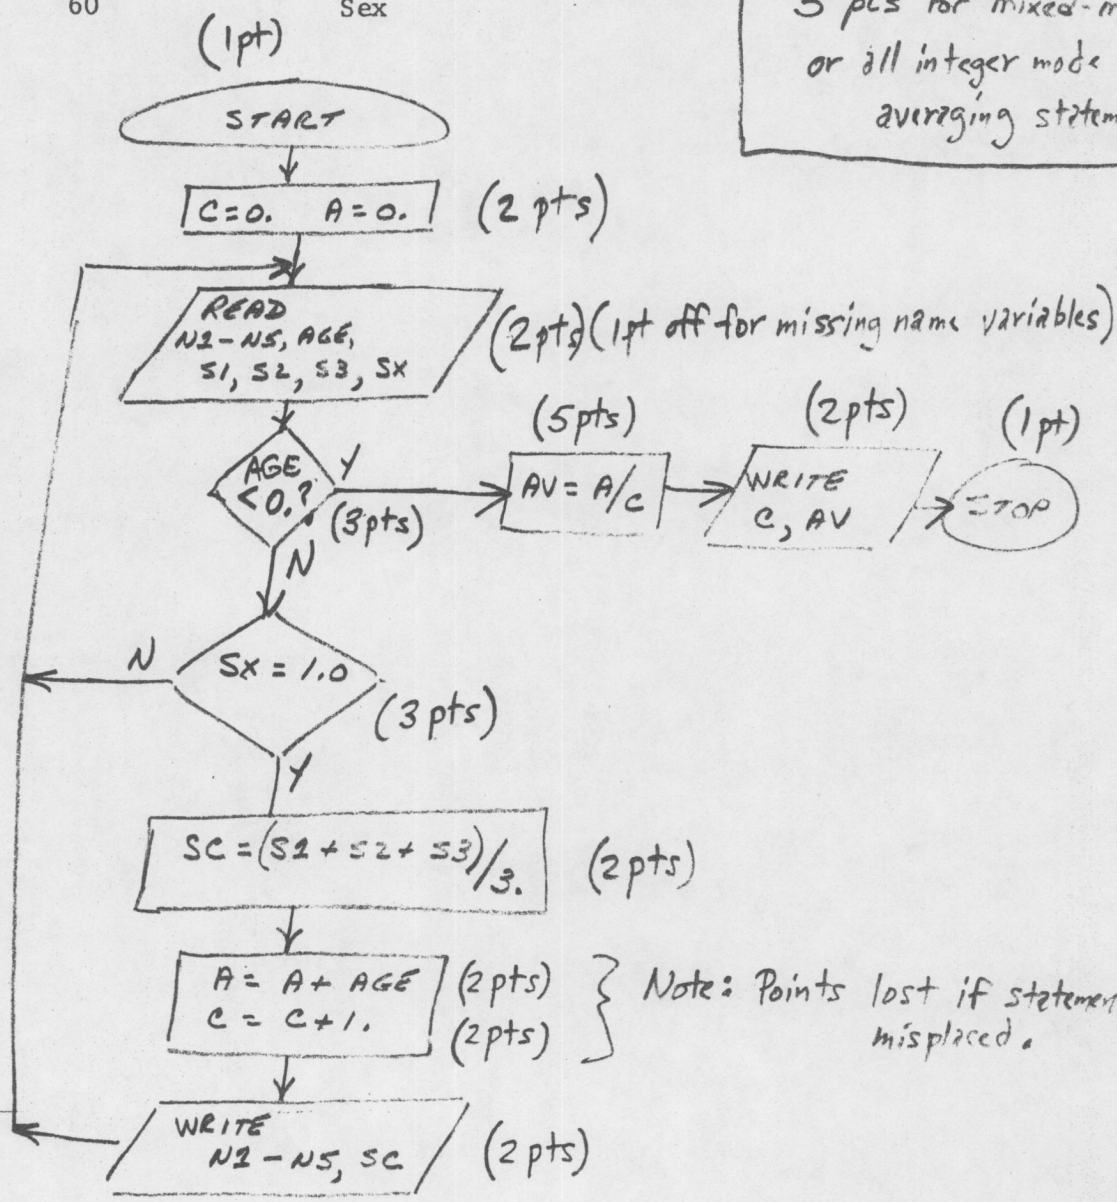 60 Sex
(1pt)
3 pts for mixed-m
or all integer mode
averaging statem
START
C=0. A=0. (2 pts)
READ
N1-N5, AGE,
S1, S2, S3, SX
(2pts)(1pt off for missing name variables)
AGE
<0.?
Y
(3pts)
N
(5pts)
AV = A/C
(2pts)
WRITE
C, AV
(1pt)
STOP
N
SX = 1.0
(3 pts)
Y
SC = (S1 + S2 + S3)/3. (2pts)
A = A + AGE (2pts)
C = C+1. (2pts)
Note: Points lost if statemen
misplaced.
WRITE
N1-N5, SC (2 pts)